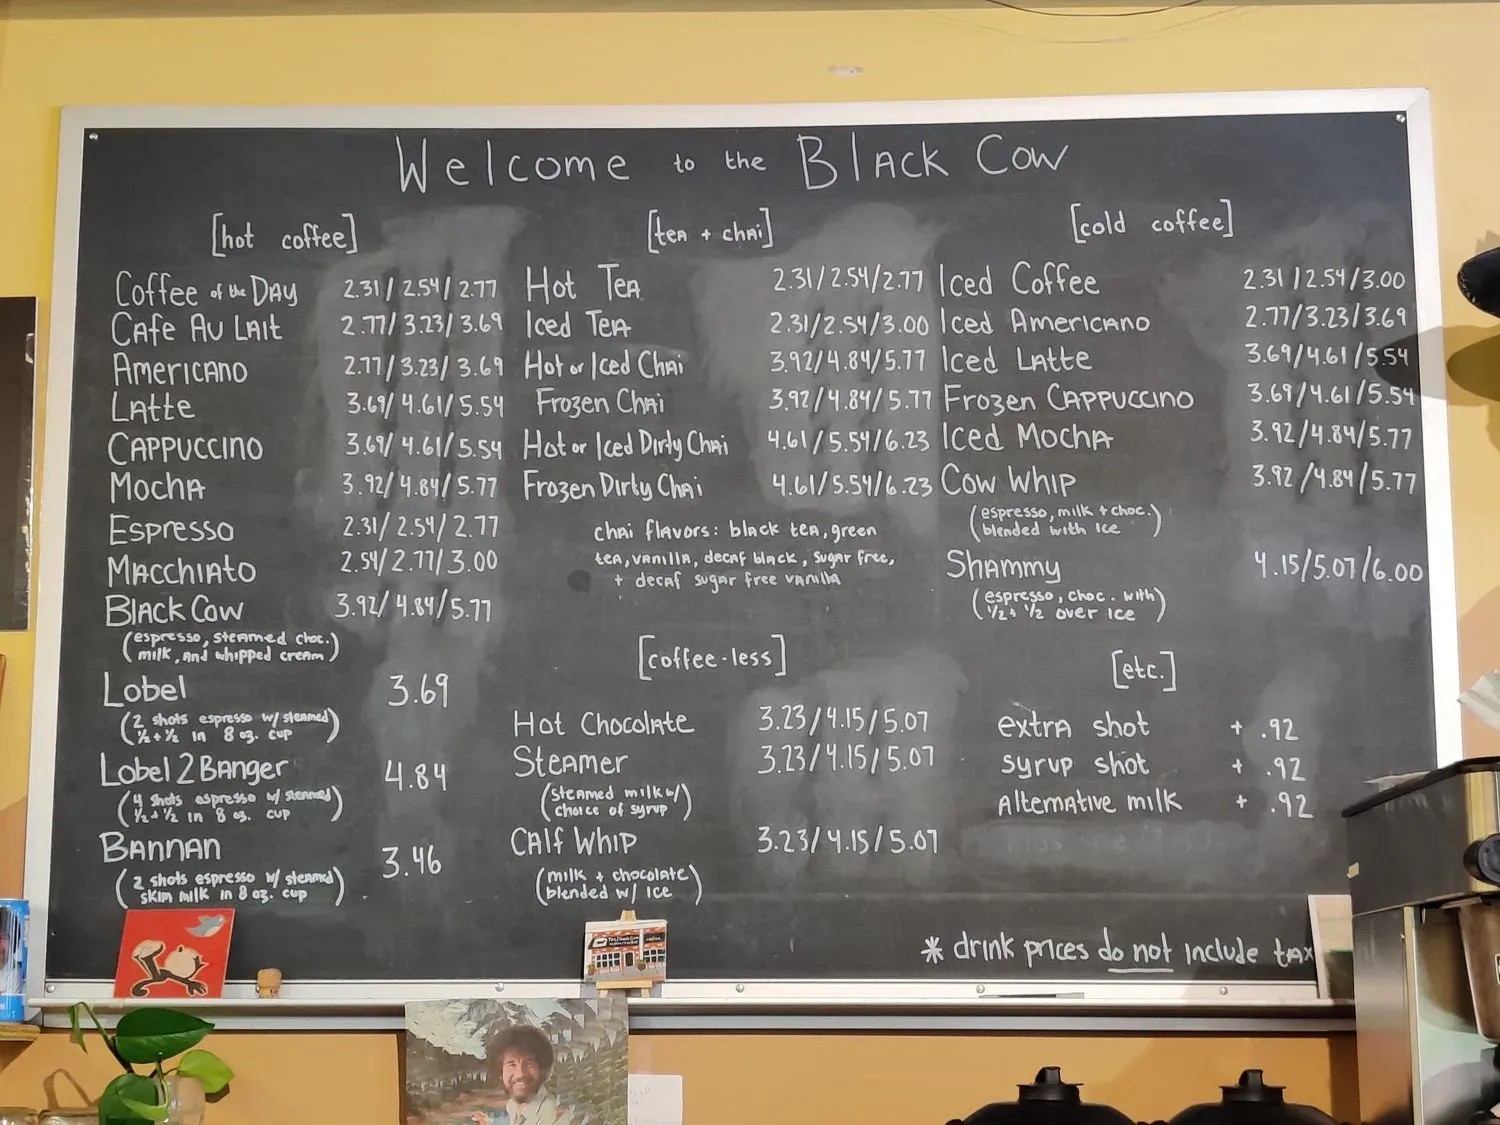 Welcome to the Black Cow
[hot coffee]
Coffee of the Day 2.31/2.54/2.77
Cafe Au Lait 2.77/3.23/3.69
Americano 2.77/3.23/3.69
Latte 3.69/4.61/5.54
Cappuccino 3.69/4.61/5.54
Mocha 3.92/4.84/5.77
Espresso 2.31/2.54/2.77
Macchiato 2.54/2.77/3.00
Black Cow 3.92/4.84/5.77
(espresso, steamed choc.
milk, and whipped cream)
Lobel 3.69
(2 shots espresso w/ steamed
½+½ in 8 oz. cup)
Lobel 2 Banger 4.84
(4 shots espresso w/ steamed
½+½ in 8 oz. cup)
Bannan 3.46
(2 shots espresso w/ steamed
skim milk in 8 oz. cup)
[tea + chai]
Hot Tea 2.31/2.54/2.77
Iced Tea 2.31/2.54/3.00
Hot or Iced Chai 3.92/4.84/5.77
Frozen Chai 3.92/4.84/5.77
Hot or Iced Dirty Chai 4.61/5.54/6.23
Frozen Dirty Chai 4.61/5.54/6.23
chai flavors: black tea, green
tea, vanilla, decaf black, sugar free,
+ decaf sugar free vanilla
[coffee-less]
Hot Chocolate 3.23/4.15/5.07
Steamer 3.23/4.15/5.07
(steamed milk w/
choice of syrup)
Calf Whip 3.23/4.15/5.07
(milk + chocolate
blended w/ ice)
[cold coffee]
Iced Coffee 2.31/2.54/3.00
Iced Americano 2.77/3.23/3.69
Iced Latte 3.69/4.61/5.54
Frozen Cappuccino 3.69/4.61/5.54
Iced Mocha 3.92/4.84/5.77
Cow Whip 3.92/4.84/5.77
(espresso, milk + choc.
blended with ice)
Shammy 4.15/5.07/6.00
(espresso, choc. with
½+½ over ice)
[etc.]
extra shot + .92
syrup shot + .92
Alternative milk + .92
* drink prices do not include tax